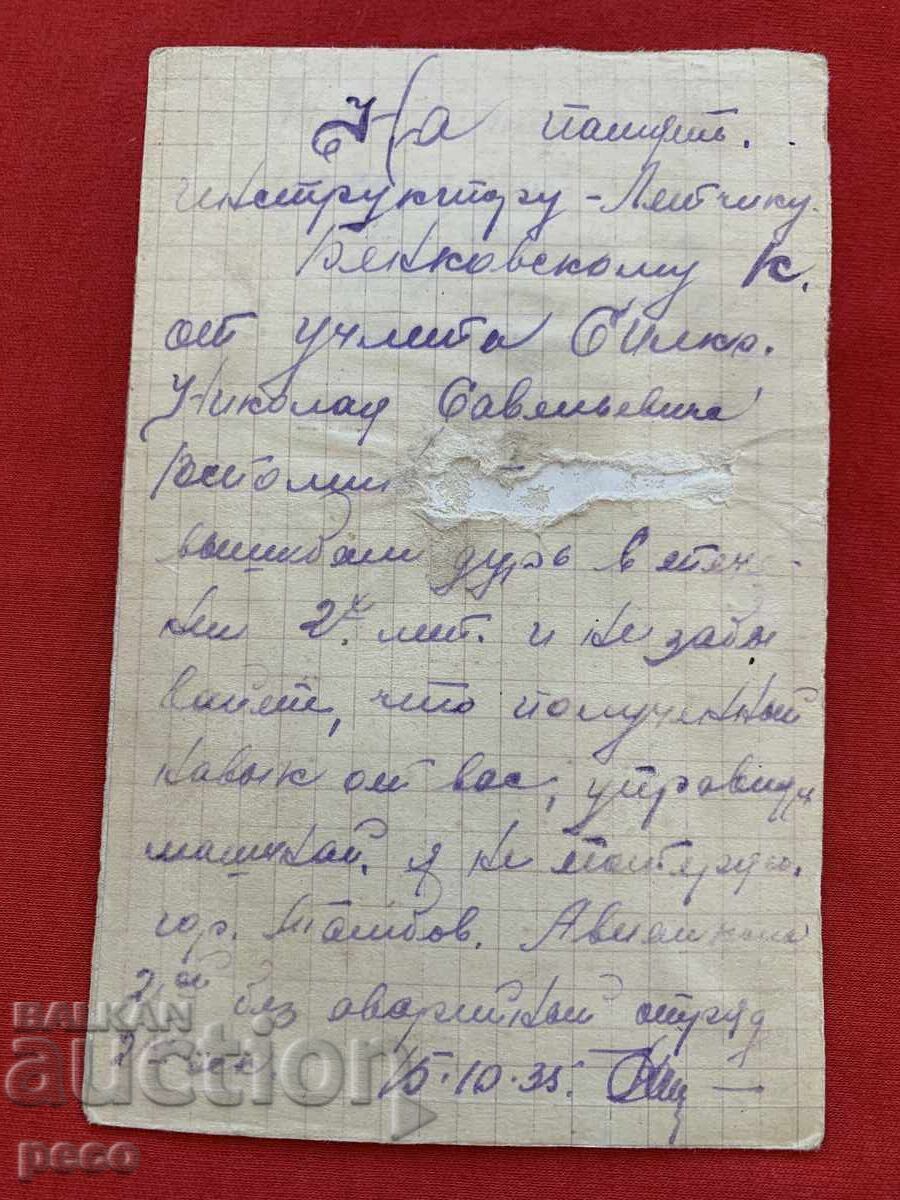 На память.
инструктору-Летчику
Бенковскому К.
от учлета
Николая Савельевича
Вспоми
вышибали дурь в тече-
ии 2х лет. и не забы
вайте, что полученный
навык от вас, управлять
машиной. я не потеряю.
гор. Тамбов. Авиашкола
2.ой без аварийный отряд
15.10.35.
BALKAN
auction
peco